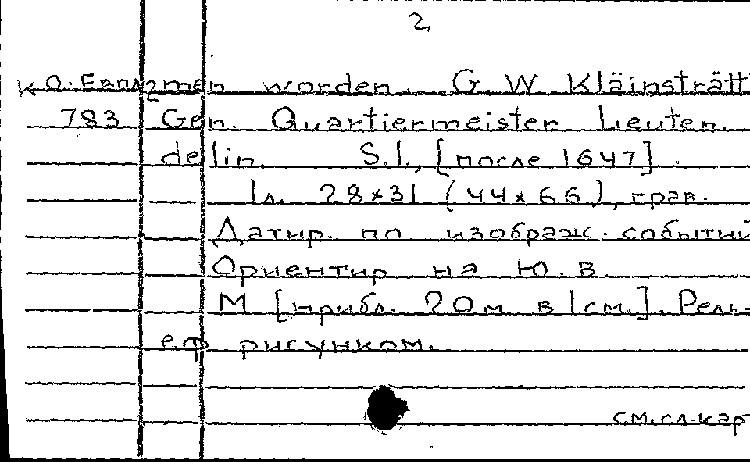 2
К О. Европ
men worden. G. W Kläinsträtt
783 Gen. Quartiermeister Lieuten.
delin. S.l., [после 1647].
1 л. 28x31 (44x66), грав.
Датир. по изображ. событий
Ориентир на Ю. В.
М [прибл. 20 м в 1 см.]. Рель-
еф рисунком.
см. сл. кар